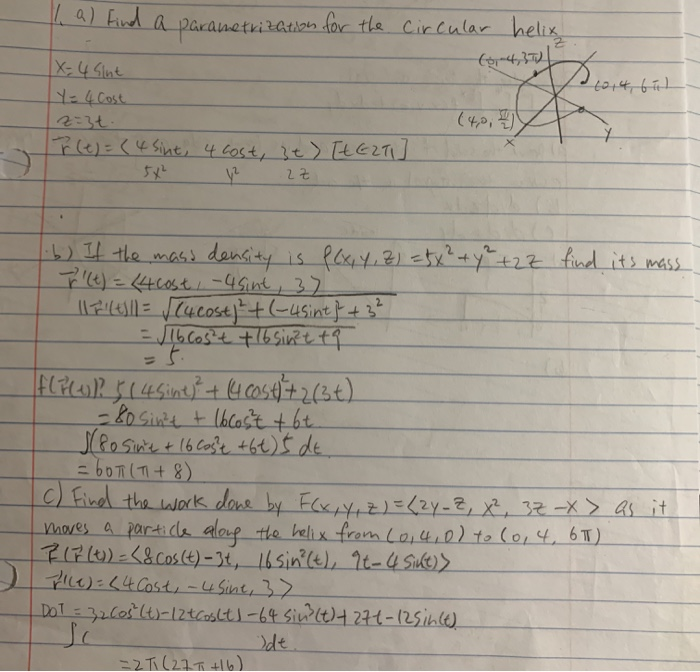 1. a) Find a parametrization for the circular helix
z
(0,-4,3π)
(0,4,6π)
(4,0,π/2)
x
y
X=4 sint
Y=4 cost
z=3t.
r⃗(t)=<4sint, 4cost, 3t> [t∈2π]
5x² y² 2z
b) If the mass density is ρ(x,y,z)=5x²+y²+2z find its mass
r⃗'(t)=<4cost, -4sint, 3>
||r⃗'(t)||=√(4cost)²+(-4sint)²+3²
=√16cos²t+16sin²t+9
=5.
f(r⃗(t))? 5(4sint)²+(4cost)²+2(3t)
=80sin²t+16cos²t+6t
∫(80sin²t+16cos²t+6t)5 dt
=60π(π+8)
C) Find the work done by F(x,y,z)=<2y-z, x², 3z-x> as it
moves a particle along the helix from (0,4,0) to (0,4,6π)
F⃗(r⃗(t))=<8cos(t)-3t, 16sin²(t), 9t-4sin(t)>
r⃗'(t)=<4cost, -4sint, 3>
DOT=32cos²(t)-12tcos(t)-64sin³(t)+27t-12sin(t)
∫( )dt
=2π(27π+16)